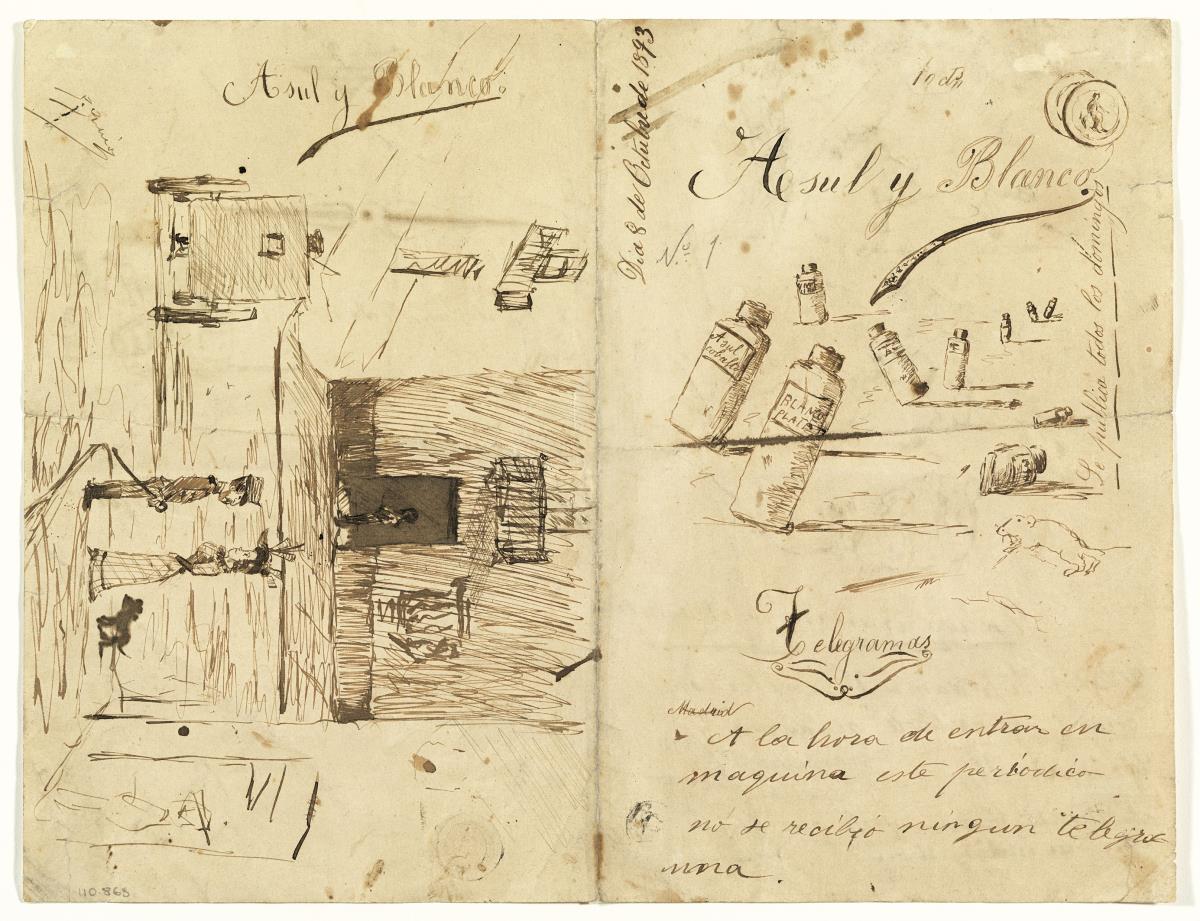 Asul y Blanco.
Dia 8 de Octubre de 1893
Asul y Blanco
Nº 1
Se publica todos los domingos
Asul
cobalto
BLANCO
PLATA
Telegramas
Madrid
A la hora de entrar en
maquina este periodico
no se recibio ningun telegra
ma.
110.863